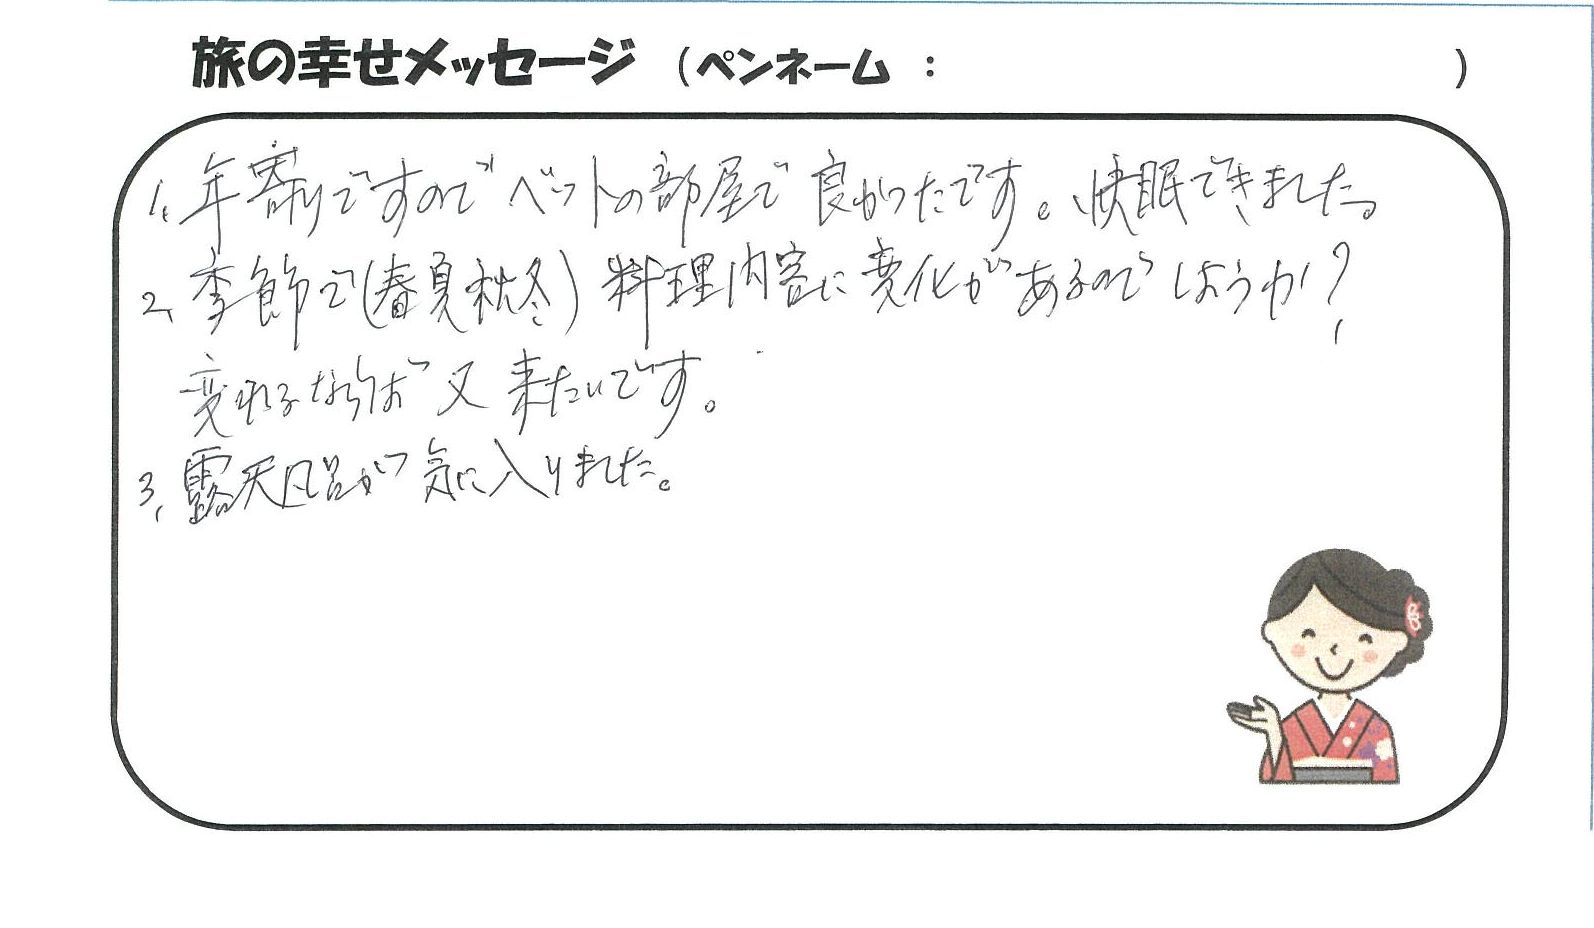 旅の幸せメッセージ （ペンネーム：　　　　　　　）
1. 年寄りですのでベットの部屋で良かったです。快眠できました。
2. 季節で(春夏秋冬) 料理内容に変化があるのでしようか?
変わるならば又来たいです。
3. 露天風呂が気に入りました。